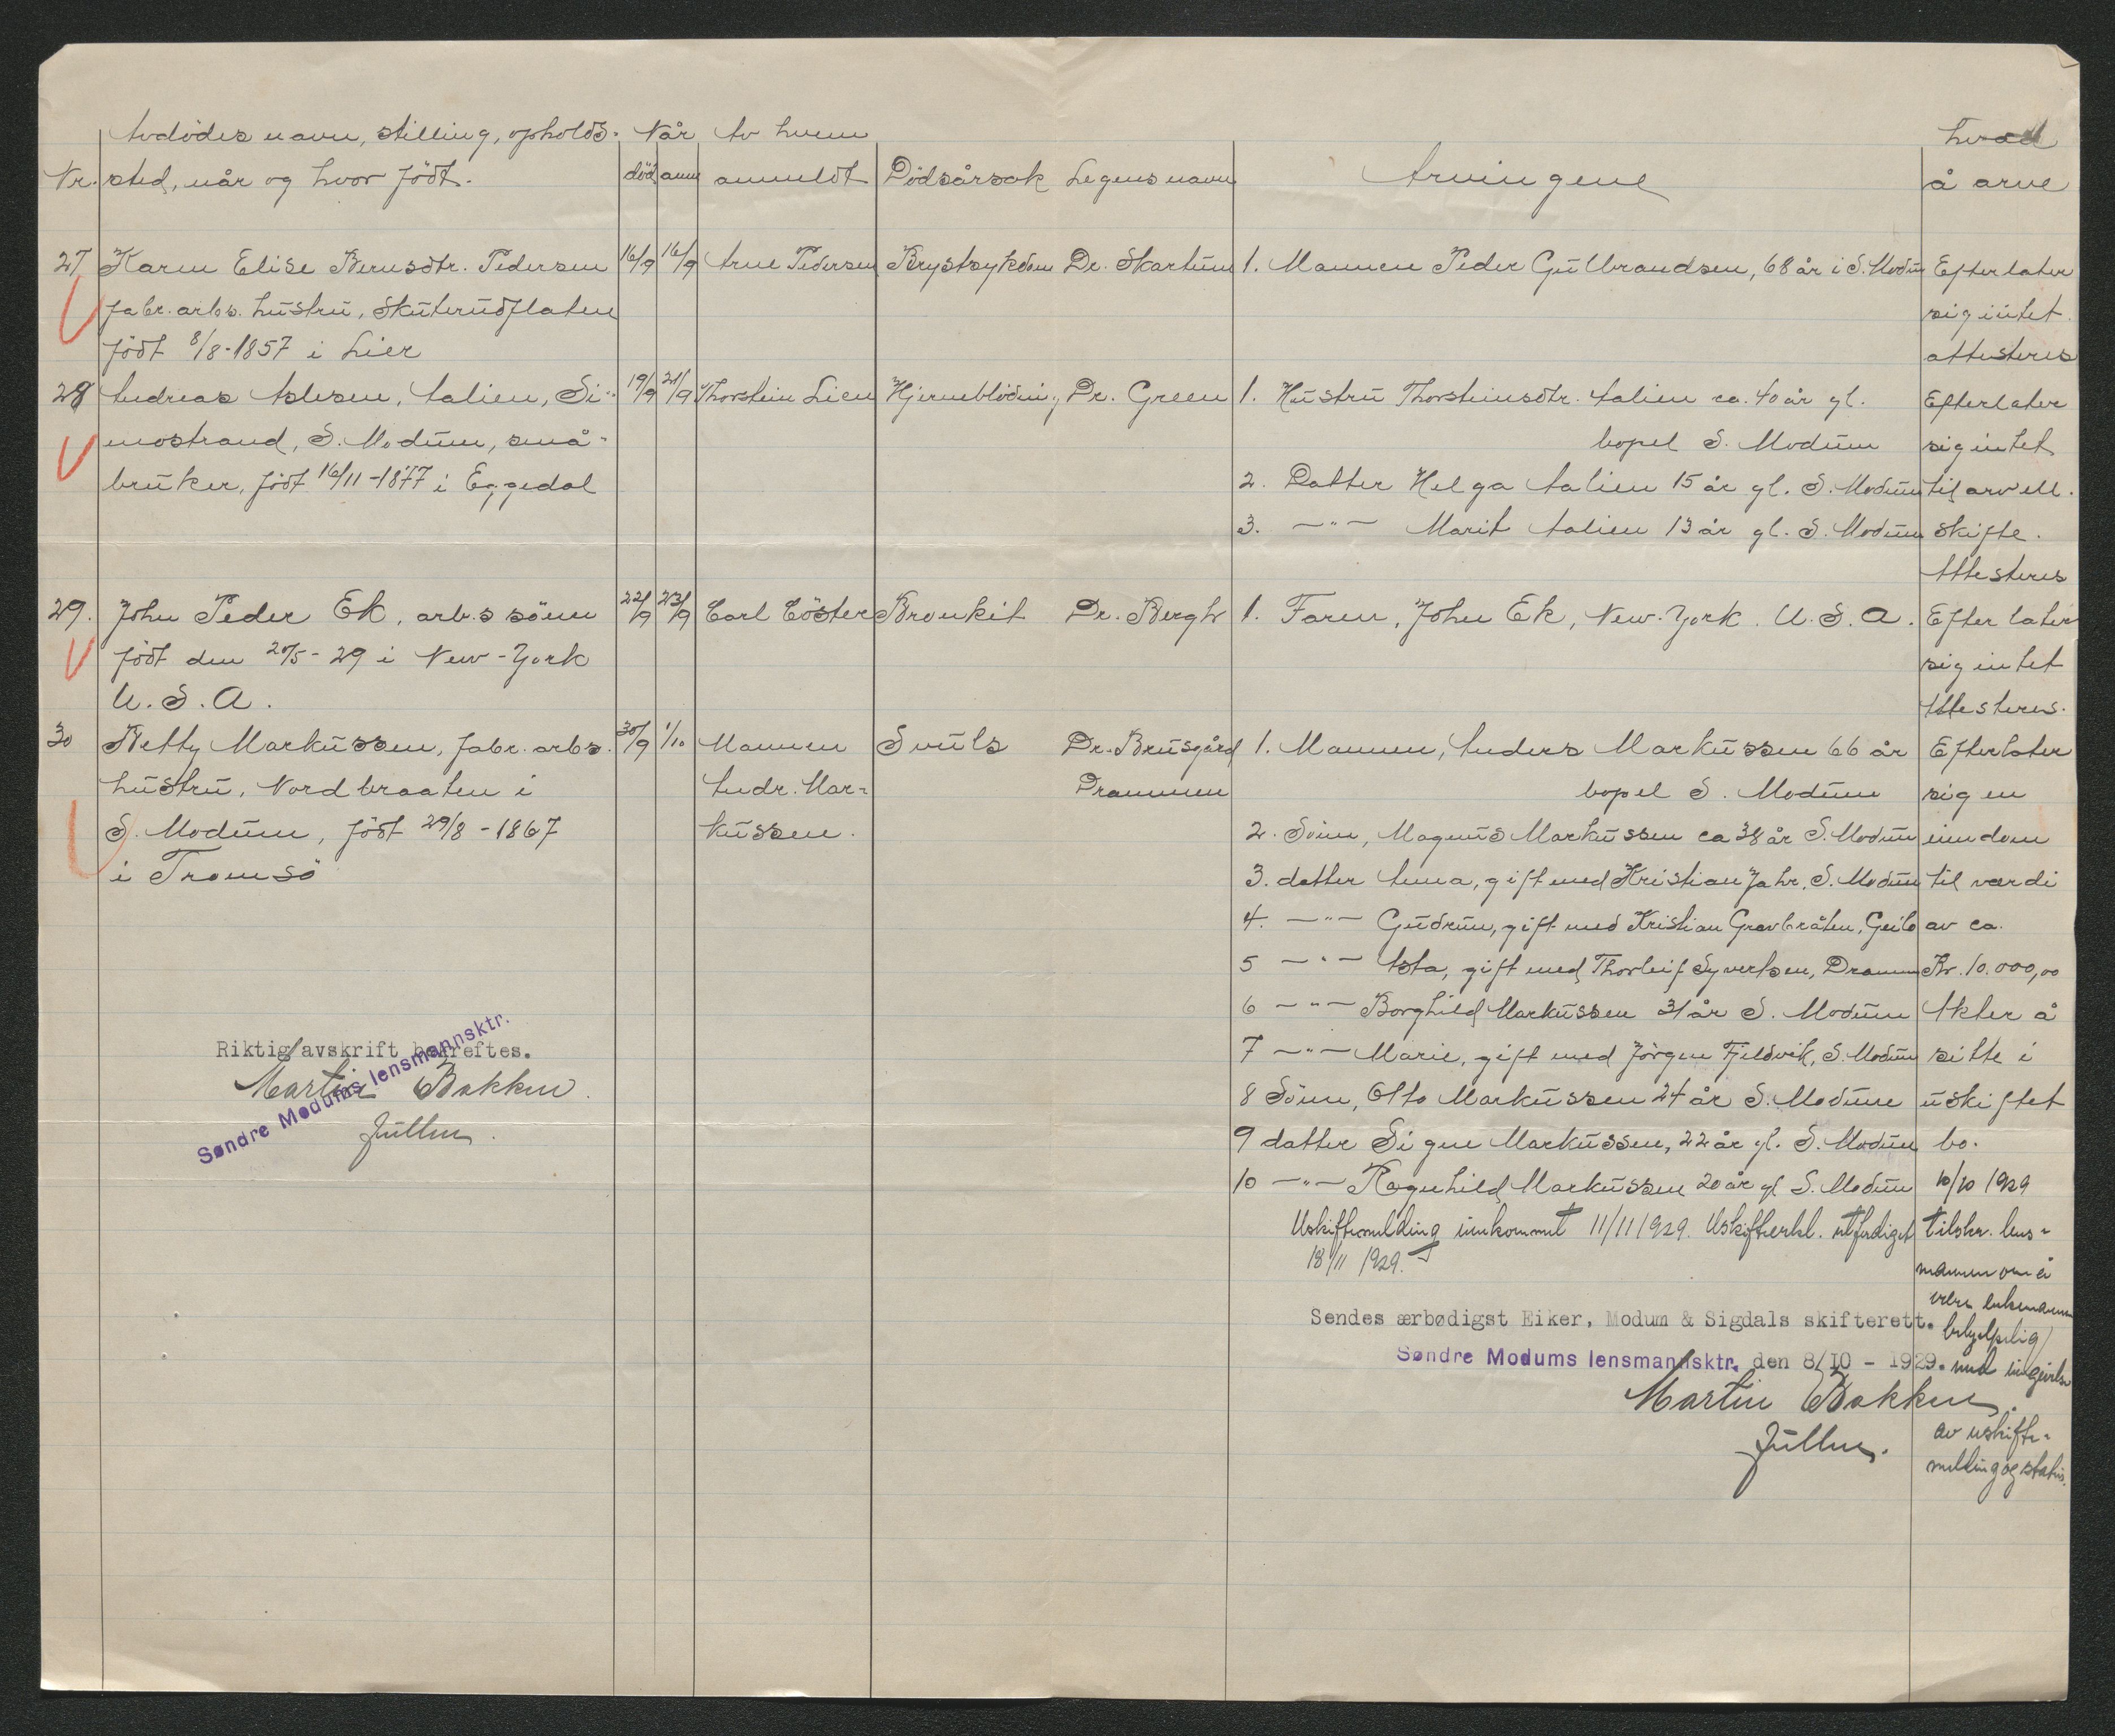 Avdödes navn, stilling, opholds- Når Av hvem hvad
Nr. sted, når og hvor födt. död anm anmeldt Dödsårsak Legens navn Arvingene å arve
27 Karen Elise Bernsdtr. Pedersen 16/9 16/9 Arne Pedersen Brystsykdom Dr. Skartum 1. Mannen Peder Gulbrandsen, 68 år i S. Modum Efterlater
fabr. arbs. hustru, Skuterudflaten sig intet.
födt 8/8-1857 i Lier attesteres
28 Andreas Aslesen, Aalien, Si- 19/9 21/9 Thorstein Lien Hjerneblödning Dr. Green 1. Hustru Thorsteinsdtr. Aalien ca. 40 år gl. Efterlater
mostrand, S. Modum, små- bopel S. Modum sig intet
bruker, födt 16/11-1877 i Eggedal 2. Datter Helga Aalien 15 år gl. S. Modum til arv ell.
3. -"- Marit Aalien 13 år gl. S. Modum skifte.
Attesteres
29. John Peder Ek, arb.s sönn 22/9 23/9 Carl Cöster Bronkit Dr. Bergh 1. Faren, John Ek, New-York. U.S.A. Efterlater
födt den 20/5-29 i New-York sig intet
U.S.A. Attesteres.
30 Betty Markussen, fabr. arbs. 30/9 1/10 Mannen Svuls Dr. Brusgård 1. Mannen, Anders Markussen 66 år Efterlater
hustru, Nordbraaten i Andr. Mar- Drammen bopel S. Modum sig en
S. Modum, födt 29/8-1867 kussen. 2. Sönn, Magnus Markussen ca 38 år S. Modum eiendom
i Tromsö 3. datter Anna, gift med Kristian Jahr, S. Modum til værdi
4. -"- Gudrun, gift med Kristian Gravbråten, Geilo av ca.
5 -"- Asta, gift med Thorleif Syvertsen, Drammen Kr. 10.000,00
6 -"- Borghild Markussen 31 år S. Modum Akter å
7 -"- Marie, gift med Jörgen Fjeldvik, S. Modum sitte i
8 Sönn, Otto Markussen 24 år S. Modum uskiftet
9 datter Signe Markussen, 22 år gl. S. Modum bo.
10 -"- Ragnhild Markussen 20 år gl S. Modum 10/10 1929
Uskiftemelding innkommet 11/11 1929. Uskifteerkl. utferdiget tilskr. lens-
18/11 1929. mannen om å
være enkemannen
behjelpelig
med inngivelse
av uskifte-
melding og status.
Riktig avskrift bekreftes.
Søndre Modums lensmannsktr.
Martin Bakken.
fullm.
Sendes ærbødigst Eiker, Modum & Sigdals skifterett.
Søndre Modums lensmannsktr. den 8/10 - 1929.
Martin Bakken.
fullm.